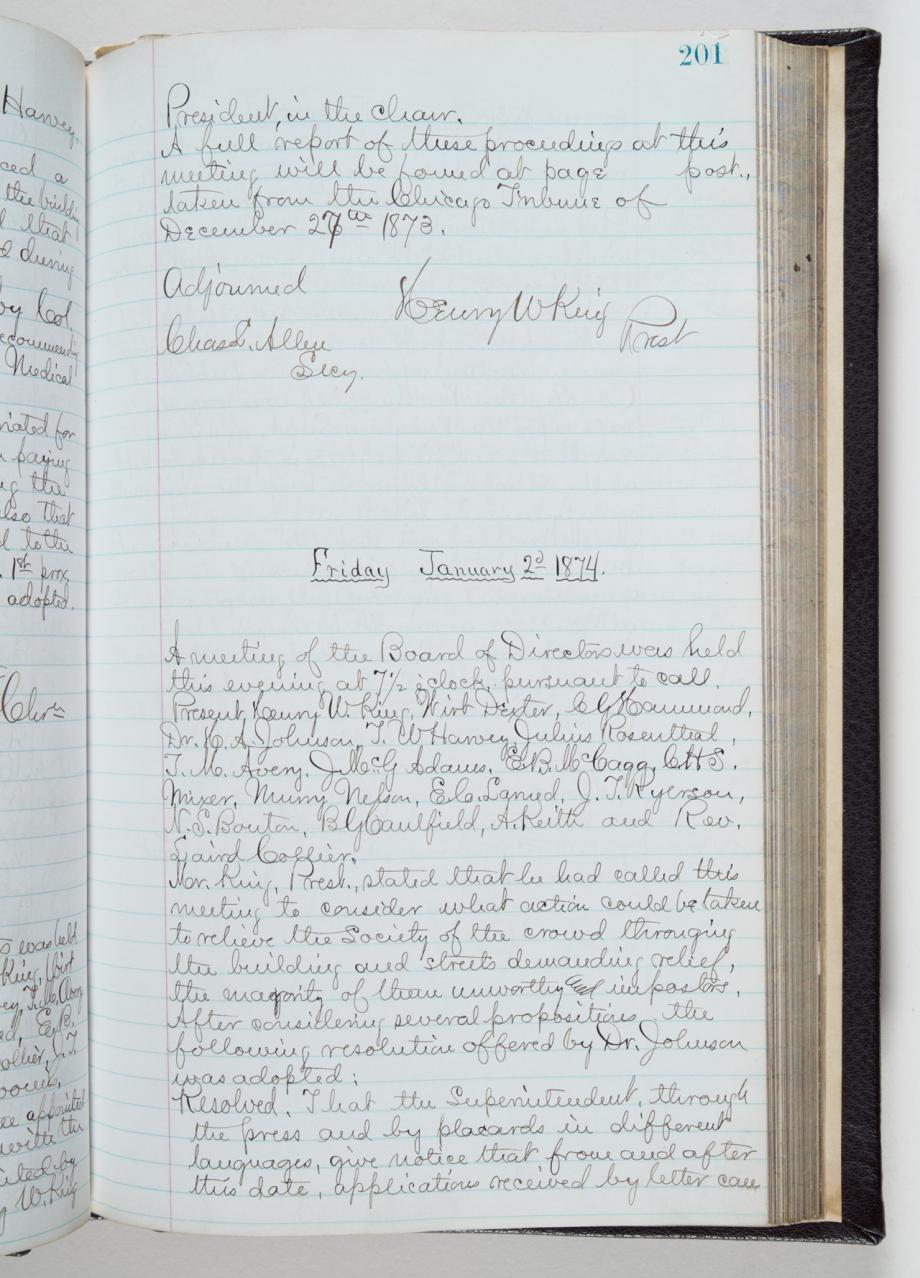 Harvey,
ced a
the buildin
l that
e during
by Col,
ecommend
Medical
riated for
n paying
ng the
also that
l to the
1st prox
adopted.
Chrn
s was held
King, Wirt
ey, T. M. Avery
ed, E. B.
ollier, J. T.
ee appointed
with the
ited by
W. King
201
President, in the chair.
A full report of these proceedings at this
meeting will be found at page post.,
taken from the Chicago Tribune of
December 27th 1873.
Adjourned
Henry W King
Prest
Chas. L. Allen
Secy.
Friday January 2d 1874.
A meeting of the Board of Directors was held
this evening at 7 1/2 o'clock, pursuant to call.
Present, Henry W. King, Wirt Dexter, C G Hammond,
Dr. H. A. Johnson, T. W Harvey, Julius Rosenthal,
T. M. Avery, J. McG Adams, E. B. McCagg, C H S.
Mixer, Murry Nelson, E. C. Larned, J. T. Ryerson,
N. S. Bouton, B G Caulfield, A. Keith and Rev.
Laird Collier.
Mr. King, Prest., stated that he had called this
meeting to consider what action could be taken
to relieve the Society of the crowd thronging
the building and streets demanding relief,
the majority of them unworthy and impostors.
After considering several propositions the
following resolution offered by Dr. Johnson
was adopted:
Resolved, That the Superintendent, through
the press and by placards in different
languages, give notice that from and after
this date, applications received by letter can